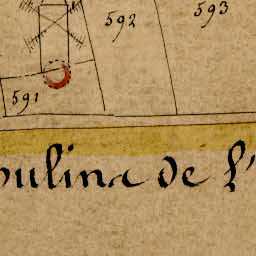 592 593
591
oulina de l'